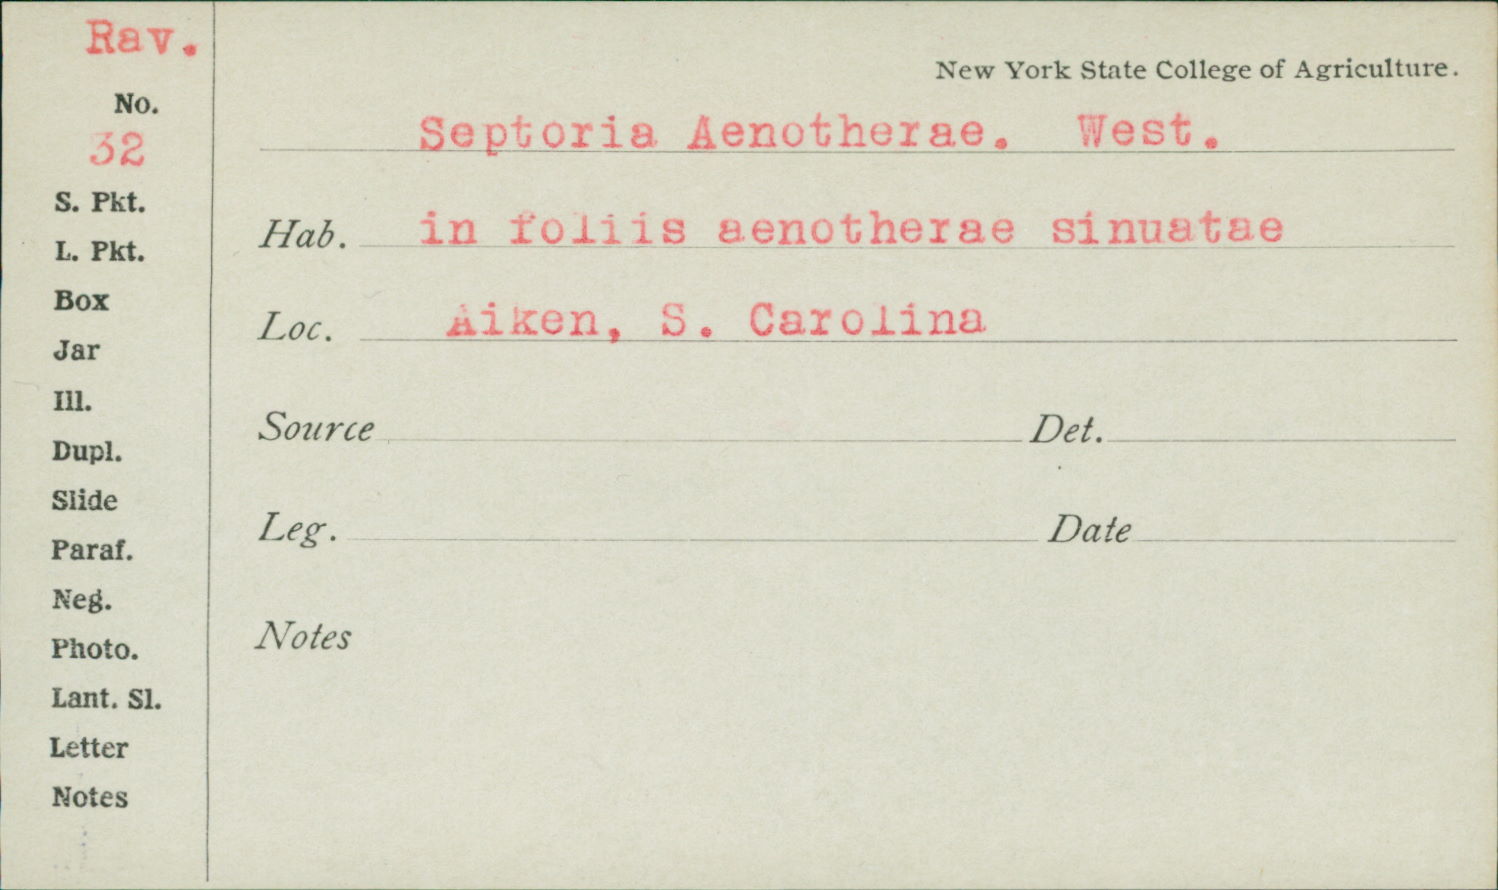 Rav.
No.
32
S. Pkt.
L. Pkt.
Box
Jar
Ill.
Dupl.
Slide
Paraf.
Neg.
Photo.
Lant. Sl.
Letter
Notes
New York State College of Agriculture.
Septoria Aenotherae. West.
Hab. in foliis aenotherae sinuatae
Loc. Aiken, S. Carolina
Source Det.
Leg. Date
Notes